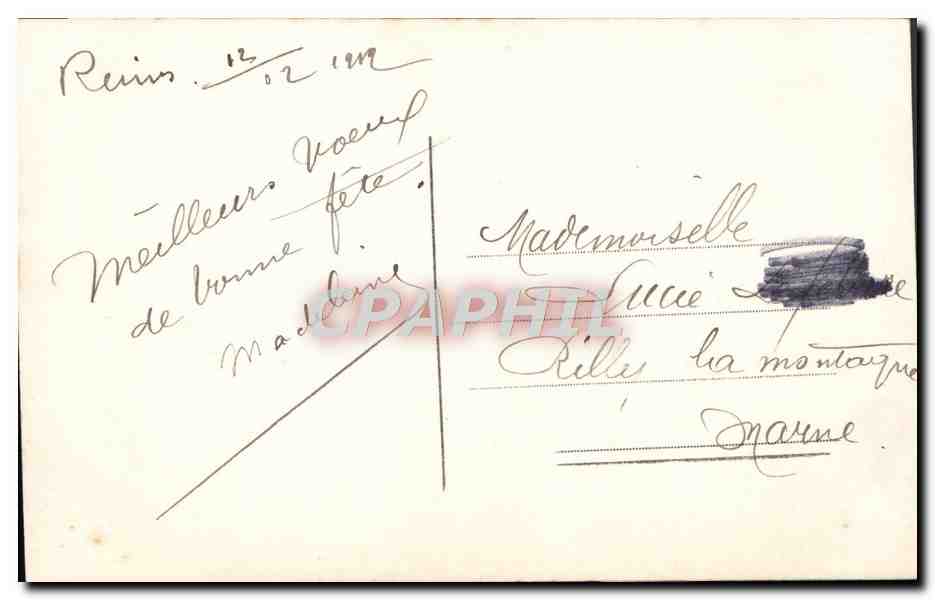 Reims. 12/02 1912
Meilleurs voeux
de bonne fête.
Madeleine
CPAPHIL
Mademoiselle
Lucie
Rilly la montagne
Marne.